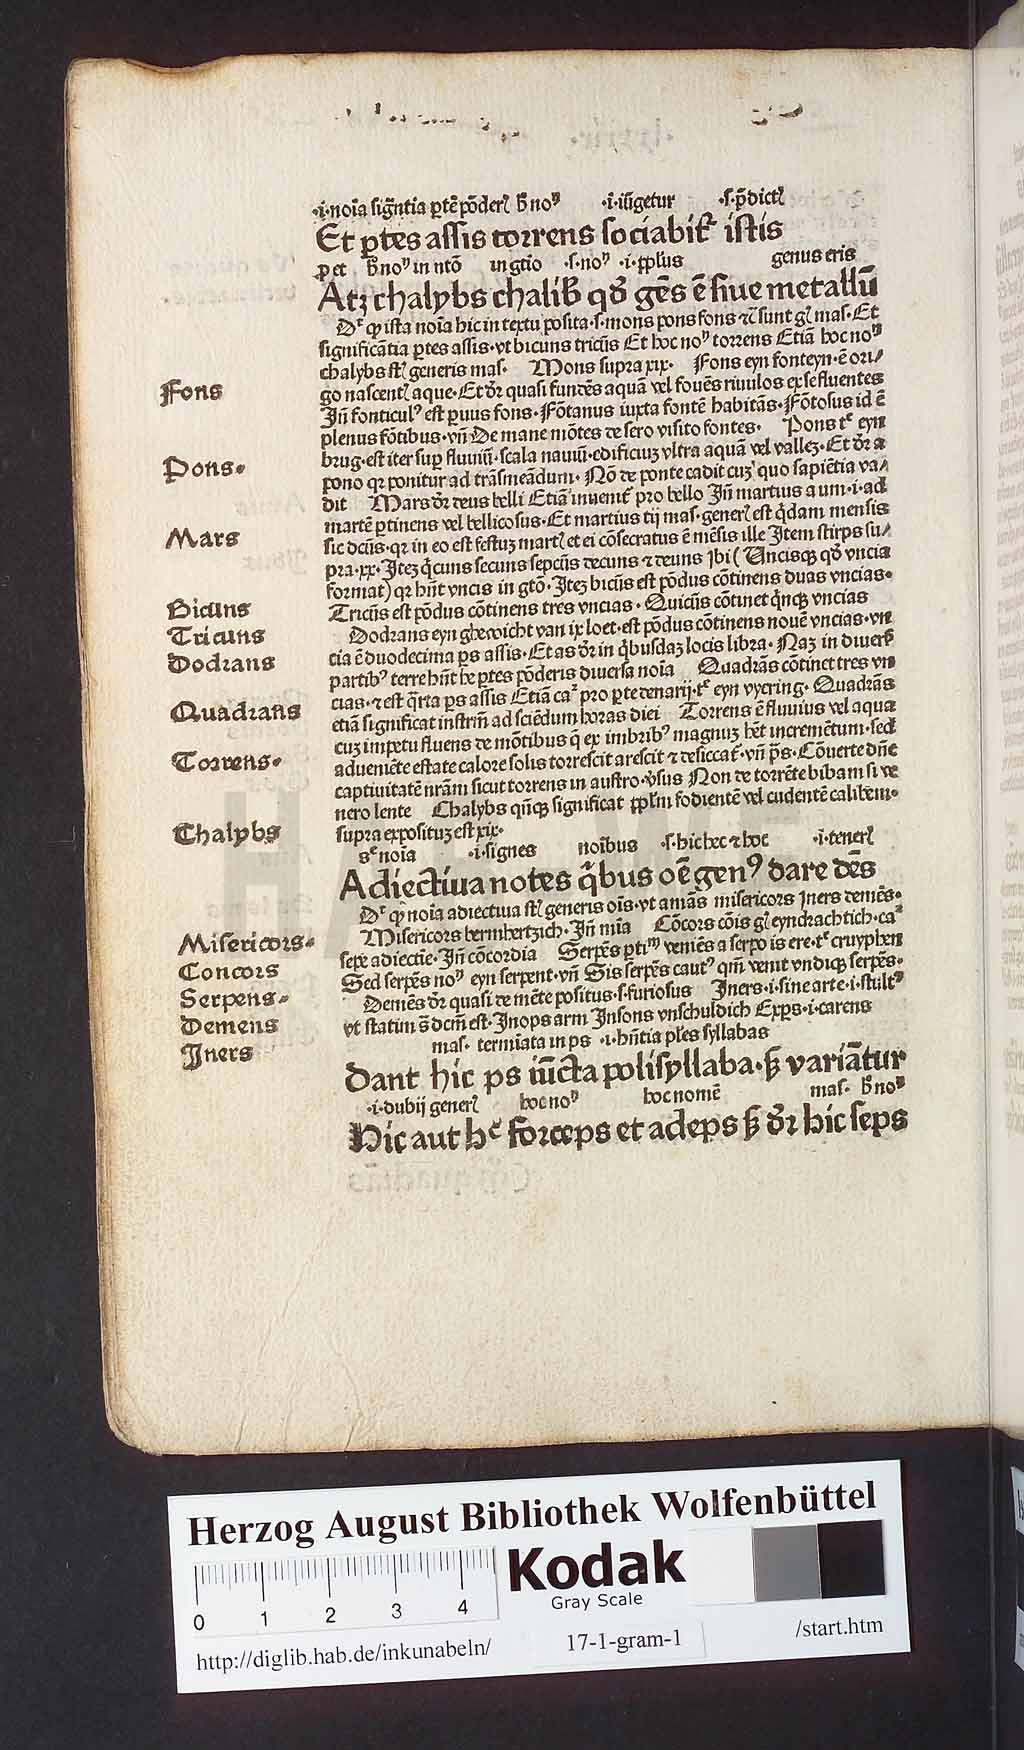 ·i·noīa siḡntia ꝑtē pōderꝭ h̄ noᵐ ·i·iūgetur ·s·p̄dictꝭ
Et ꝑtes assis torrens sociabitᷣ istis
ꝓ et h̄ noᵐ in ntō in gtīo ·s·noᵐ ·i·ꝓprius genus eris
Atꝫ chalybs chalib̄ qđ gēs ē siue metallū
Dᷣ ꝙ ista noīa hic in textu posita·s·mons pons fons ⁊cꝭ sunt gꝭ mas· Et
significātia ꝑtes assis·vt bicuns tricūs Et hoc noᵐ torrens Etiā hoc noᵐ
chalybs sꝭ generis mas· Mons supra xix· Fons eyn fonteyn·ē ori/
Fons
go nascentꝭ aque·Et đr quasi fundēs aquā vel fouēs riuulos ex se fluentes
Jn̄ fonticulꝰ est ꝑuus fons·Fōtanus iuxta fontē habitās·Fōtosus id ē
plenus fōtibus·vn̄ De mane mōtes de sero visito fontes· Pons tᷤ eyn
Pons·
brug·est iter suꝑ fluuiū·scala nauiū·edificiuꝫ vltra aquā vel valleꝫ·Et đr a
pono qꝛ ponitur ad trāsmeādum· Nō de ponte cadit cuꝫ quo sapiētia va/
dit Mars đr deus belli Etiā inuenitᷣ pro bello Jn̄ martius a um·i·ad
Mars
martē ꝑtinens vel bellicosus·Et martius tij mas·generꝭ est q̄dam mensis
sic dcūs·qꝛ in eo est festuꝫ martꝭ et ei cōsecratus ē mēsis ille Jtem stirps su/
pra·xx·Jteꝫ q̄cuns secuns sepcūs decuns ⁊ deuns Jbi (Uncisqꝫ qđ vncia
format) qꝛ hn̄t vncis in gtō·Jteꝫ bicūs est pōdus cōtinens duas vncias·
Bicuns
Tricūs est pōdus cōtinens tres vncias· Quicūs cōtinet q̄nqꝫ vncias
Tricuns
Dodrans eyn ghewicht van ix loet·est pōdus cōtinens nouē vncias·vn
Dodrans
cia ē duodecima ꝑs assis·Et as đr in q̄busdaꝫ locis libra· Naꝫ in diuersꝭ
partibꝰ terre hn̄t he ꝑtes pōderis diuersa noīa Quadrās cōtinet tres vn
cias·⁊ est q̄rta ꝑs assis Etiā caꝭ pro ꝑte denarij·tᷤ eyn vyering· Quadrās
Quadrans
etiā significat instrm̄ ad sciēdum horas diei Torrens ē fluuius vel aqua
cuꝫ impetu fluens de mōtibus q̄ ex imbribꝰ magnuꝫ h̄et incremētum·sed
Torrens·
adueniēte estate calore solis torrescit arescit ⁊ desiccatᷣ·vn̄ p̄s·Cōuerte dn̄e
captiuitatē nr̄am sicut torrens in austro·v̄sus Non de torrēte bibam si ve
nero lente Chalybs qn̄qꝫ significat ꝓprm̄ fodientē vel cudentē calibem·
Chalybs
supra expositus est xix·
sᷤ noīa ·i·signes noībus ·s·hic hec ⁊ hoc ·i·tenerꝭ
Adiectiua notes q̄bus oē genꝰ dare dēs
Dᷣ ꝙ noīa adiectiua sꝭ generis oīs·vt amās misericors Jners demēs·
Misericors bermhertzich·Jn̄ mīa Cōcors cōis gꝭ eyndrachtich·caꝭ
Misericors·
sepe adiectīe·Jn̄ cōcordia Serpēs ꝑtiᵐ veniēs a serpo is ere·tᷤ cruyphen
Concors
Sed serpēs noᵐ eyn serpent·vn̄ Sis serpēs cautꝰ qm̄ venit vndiqꝫ serpēs·
Serpens·
Demēs đr quasi de mēte positus·s·furiosus Jners·i·sine arte·i·stultꝰ
Demens
vt statim s̄ dcm̄ est·Jnops arm Jnsons vnschuldich Exꝑs·i·carens
Jners
mas· termīata in ps ·i·hn̄tia pl̄es syllabas
Dant hic ps iūcta polisyllaba·sꝫ variātur
·i·dubij generꝭ hoc noᵐ hoc nomē mas· h̄ noᵐ
Hic aut hᷤ forceps et adeps sꝫ đr hic seps
Herzog August Bibliothek Wolfenbüttel
Kodak
Gray Scale
0 1 2 3 4
http://diglib.hab.de/inkunabeln/
17-1-gram-1
/start.htm
HAB WF